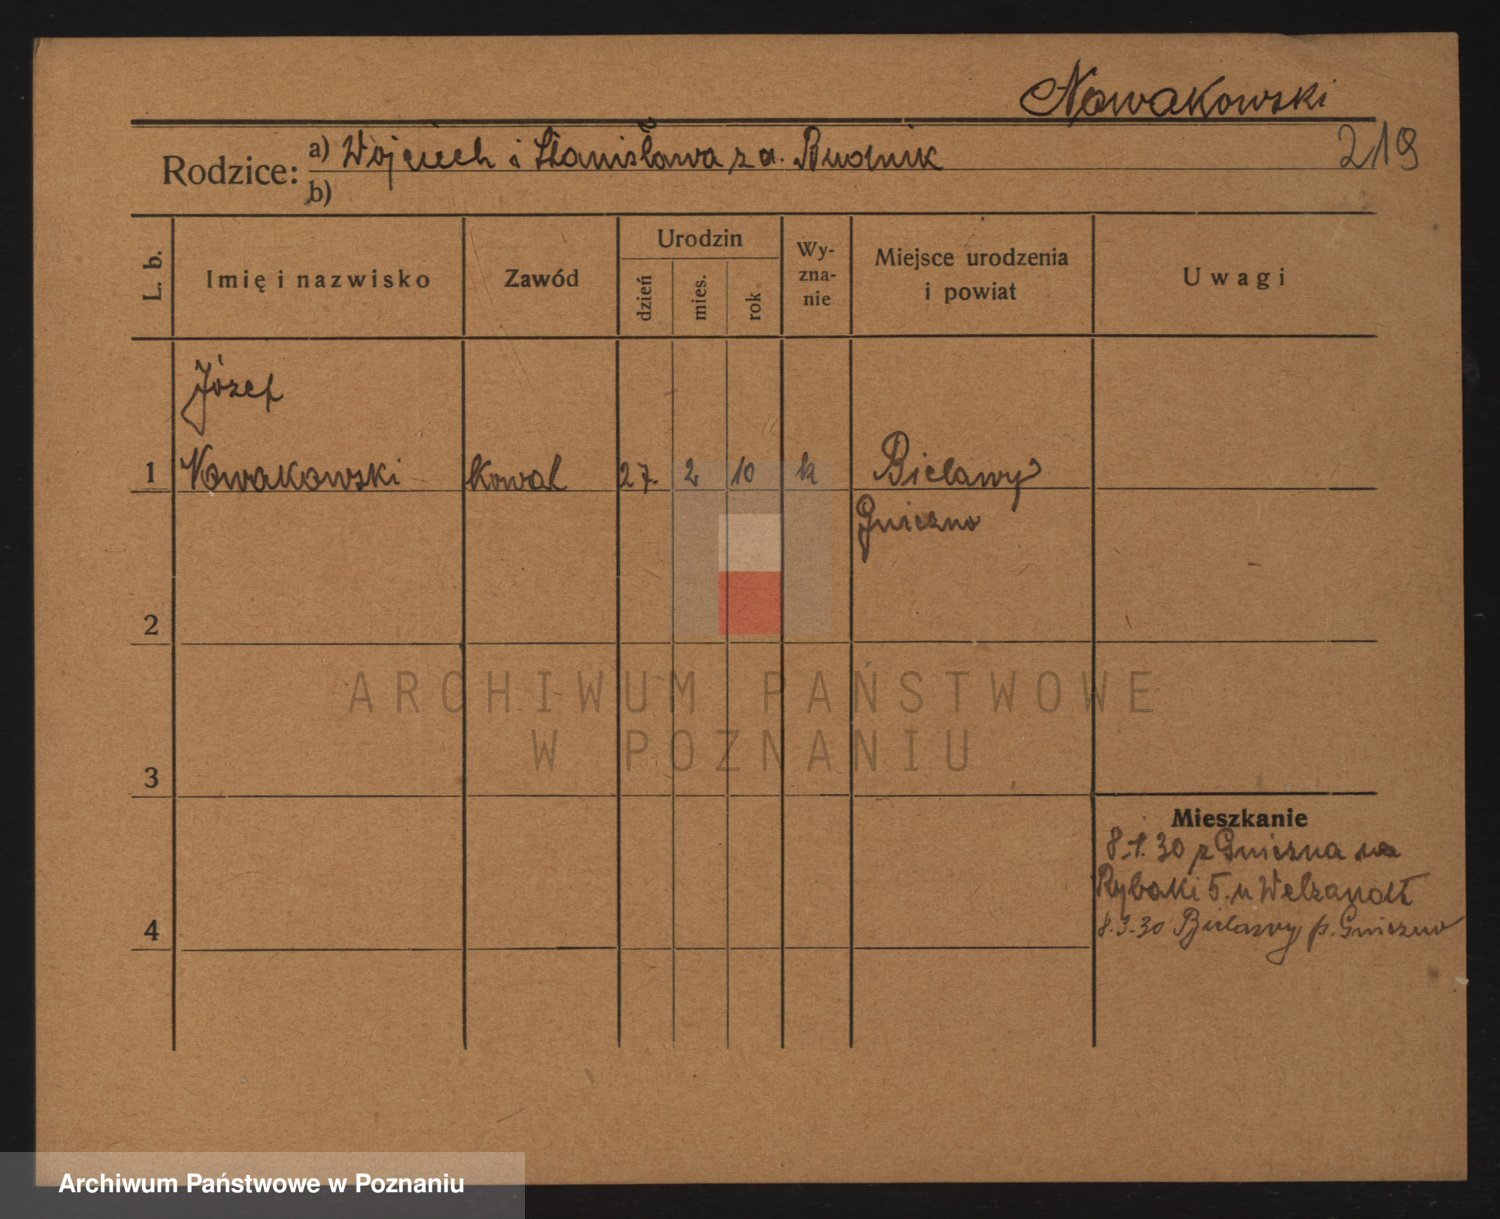 Nowakowski
219
Rodzice: a) Wojciech i Stanisława z d. Budnik
b)
L. b.
Imię i nazwisko
Zawód
Urodzin
dzień
mies.
rok
Wy-
zna-
nie
Miejsce urodzenia
i powiat
Uwagi
Józef
1 Nowakowski Kowal 27. 2 10 k Bielawy
Gniezno
2
3
4
Mieszkanie
8.1.30 z Gniezna na
Rybaki 5. u Welzandt
8.3.30 Bielawy p. Gniezno
ARCHIWUM PAŃSTWOWE
W POZNANIU
Archiwum Państwowe w Poznaniu